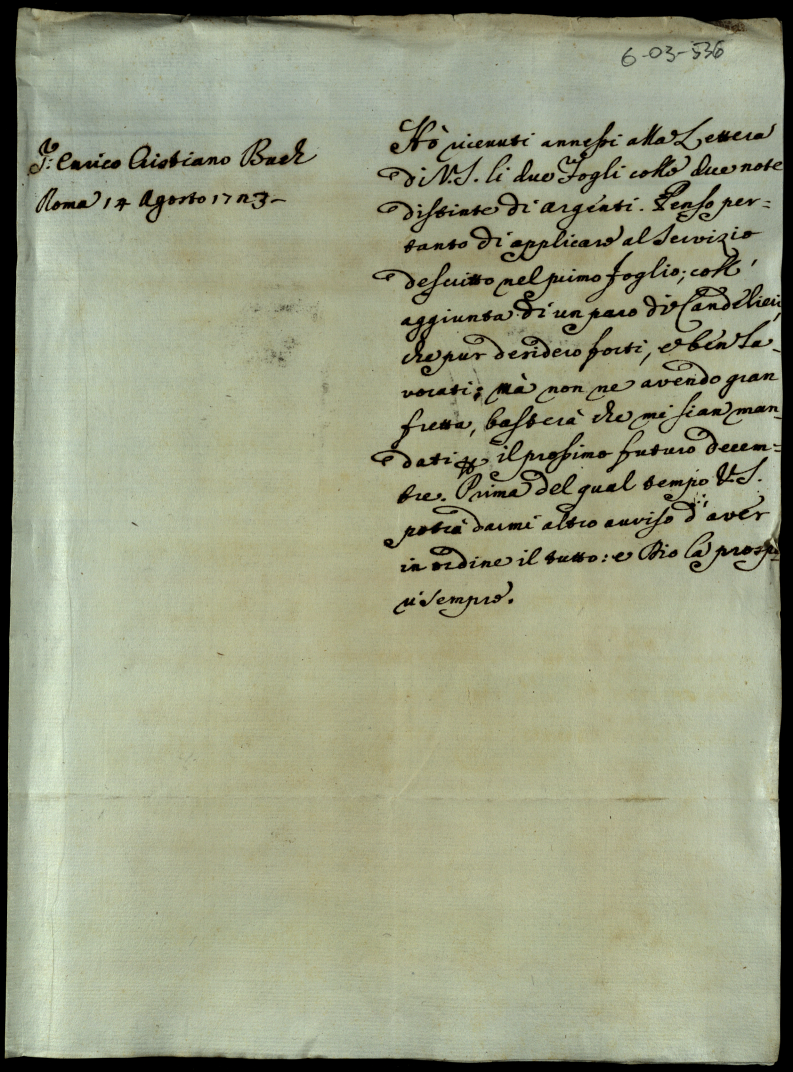 6-03-536
F: Enrico Cristiano Bach
Roma 14 Agosto 1723-
Hò ricevuti annessi alla Lettera
di V.S. li due Fogli colle due note
distinte di argenti. Penso per=
tanto di applicare al Servizio
descritto nel primo foglio; coll'
aggiunta di un paro di Candelieri,
che pur desidero forti, e ben la=
vorati; mà non ne avendo gran
fretta, basterà che mi sian man=
dati il prossimo futuro decem=
bre. Prima del qual tempo V.S.
potrà darmi altro avviso d'aver
in ordine il tutto: e Dio la prospe=
ri sempre.